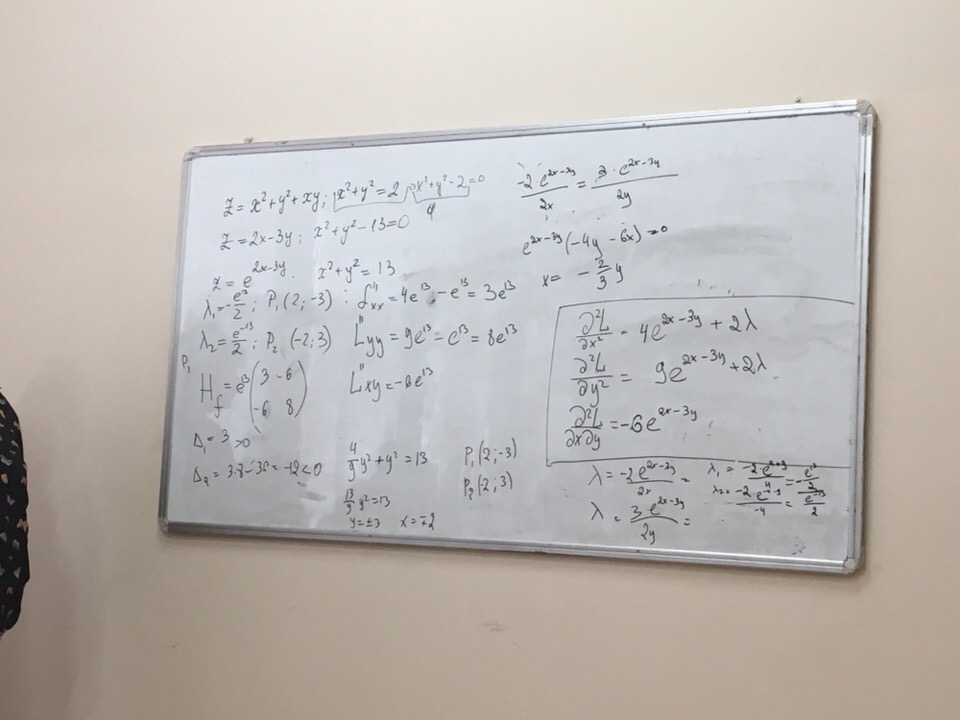 z = x² + y² + xy; x² + y² = 2 ⇒ x² + y² - 2 = 0
φ
z = 2x - 3y; x² + y² - 13 = 0
z = e^{2x-3y}. x² + y² = 13
λ₁ = -e¹³/2; P₁ (2; -3) : L''xx = 4e¹³ - e¹³ = 3e¹³
λ₂ = e⁻¹³/2; P₂ (-2; 3) L''yy = 9e¹³ - e¹³ = 8e¹³
P₁
H_f = e¹³ (3 -6
-6 8) L''xy = -6e¹³
Δ₁ = 3 > 0
Δ₂ = 3·8 - 36 = -12 < 0
4/9 y² + y² = 13
13/9 y² = 13
y = ±3 x = ∓2
P₁ (2; -3)
P₂ (-2; 3)
-2·e^{2x-3y}/2x = 3·e^{2x-3y}/2y
e^{2x-3y} (-4y - 6x) = 0
x = -2/3 y
∂²L/∂x² = 4e^{2x-3y} + 2λ
∂²L/∂y² = 9e^{2x-3y} + 2λ
∂²L/∂x∂y = -6e^{2x-3y}
λ = -2e^{2x-3y}/2x =
λ = 3·e^{2x-3y}/2y =
λ₁ = -2·e^{4+9}/4 = -e¹³/2
λ₂ = -2·e^{-4-9}/-4 = e⁻¹³/2